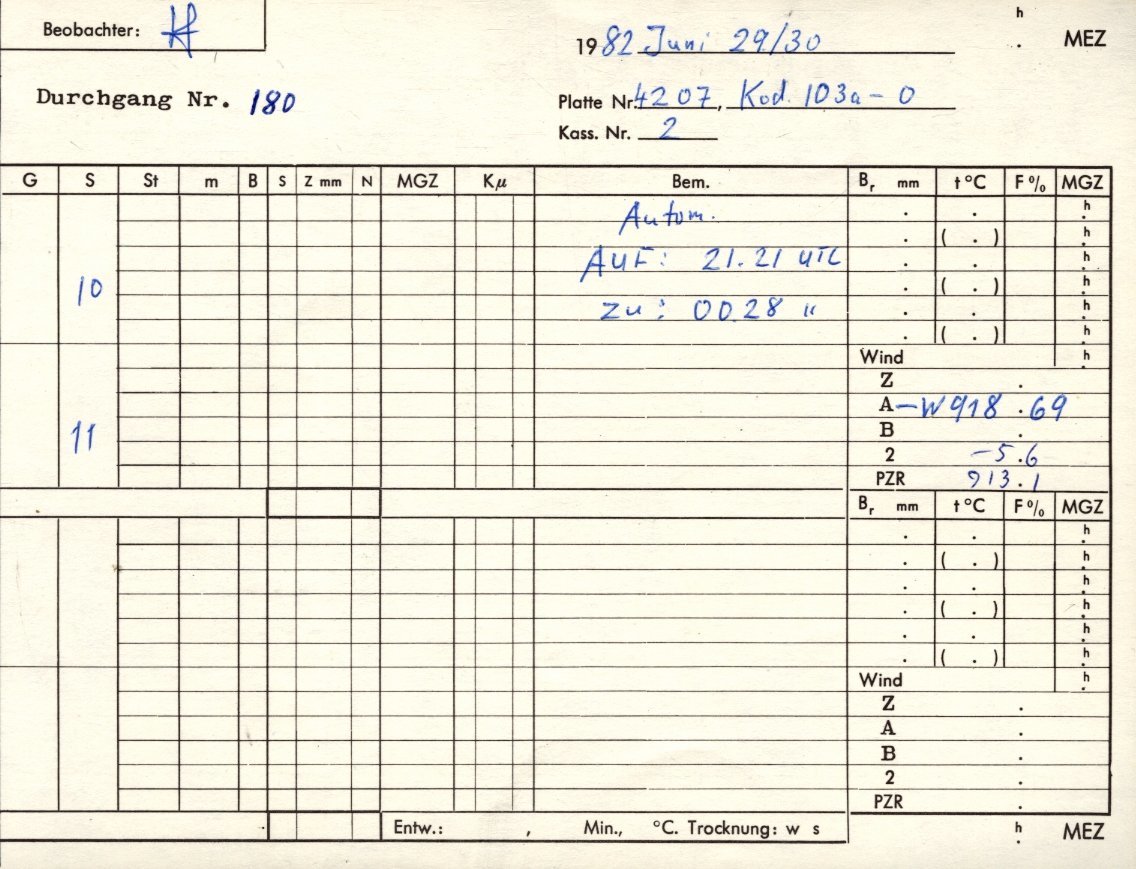 Beobachter: Kf
h
1982 Juni 29/30 . MEZ
Durchgang Nr. 180
Platte Nr. 4207, Kod. 103a-O
Kass. Nr. 2
G S St m B S Z mm N MGZ Kµ Bem. Br mm t °C F % MGZ
Autom. . . h
. ( . ) h
AUF: 21.21 UTC . . h
10 . ( . ) h
zu: 00.28 " . . h
. ( . ) h
Wind h
Z .
A -W 918 .69
11 B .
2 -5.6
PZR 913.1
Br mm t °C F % MGZ
. . h
. ( . ) h
. . h
. ( . ) h
. . h
. ( . ) h
Wind h
Z .
A .
B .
2 .
PZR .
Entw.: , Min., °C. Trocknung: w s h
. MEZ